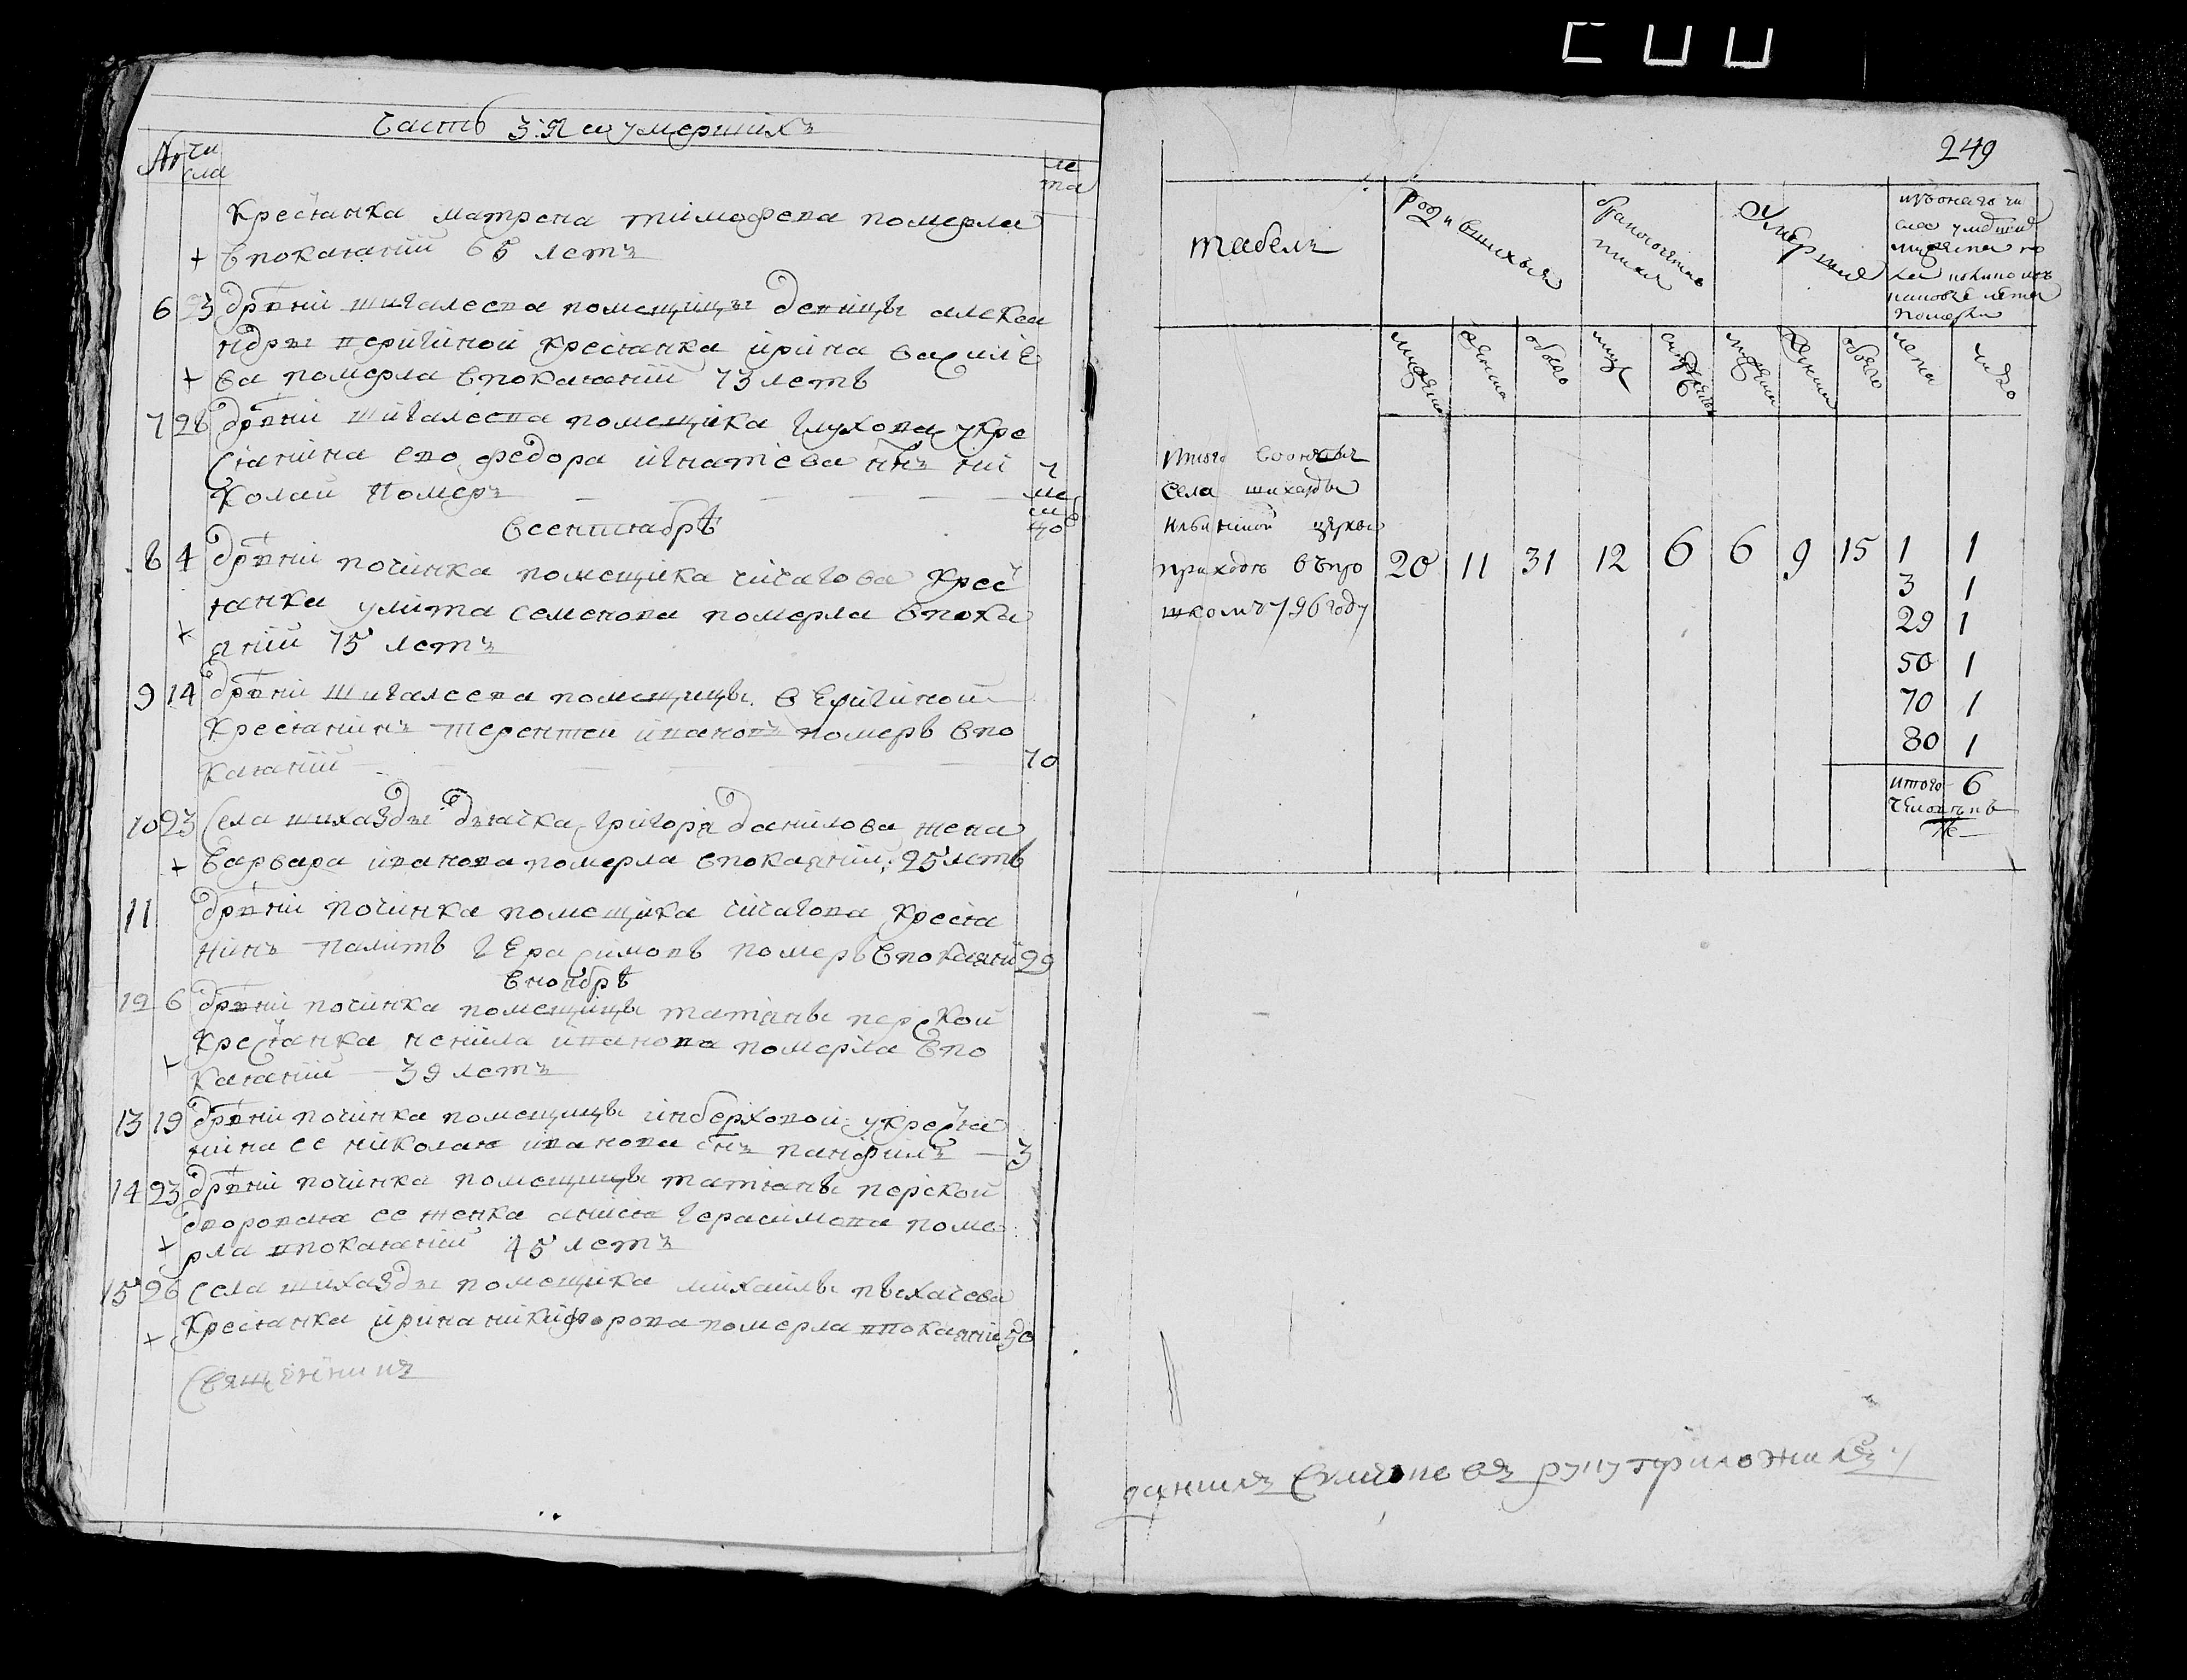 Часть 3: Я о умершихъ
№ чи
сла
ле
та
Крестянка матрена тимофева померла
+ впокаянии 65 летъ
6 23 дрвни шигалеева помещицы девицы алекса
ндры веригиной крестянка ирина василе
+ ва померла впокаянии 73 летъ
7 28 дрвни шигалеева помещика глухова у кре
стянина ево федора игнатева снъ ни
колай померъ
всентябрѣ
8 4 дрвни починка помещика чичагова крес
тянка улита семенова померла впока
+ янии 75 летъ
9 14 дрвни шигалеева помещицы веригиной
Крестянинъ терентей ивановъ померъ впо
каянии 70
10 23 Села шихазды дьячка григоря данилова жена
+ варвара иванова померла впокаянии 25 летъ
11 дрвни починка помещика чичагова креста
нинъ герасимовъ померъ впокаянии 29
вноябрѣ
12 6 дрвни починка помещицы татяны перской
крестянка ненила иванова померла впо
+ каянии 39 летъ
13 19 дрвни починка помещицы у крестя
нина ее николая иванова снъ панфилъ 3
14 23 дрвни починка помещицы татяны перской
дворовая ее женка анися герасимова поме
+ рла впокаянии 45 летъ
15 26 Села шихазды помещика михаилы пыхачева
+ Крестянка ирина никифорова померла впокаянии 50
Священникъ
249
табель
родившихъся
умершия
померли
мужеска
женска
обоего
муж
мужеска
женска
обоего
лета
число
Итого
села шихазды
ильинской церкви
приходе въпро
шломъ 796 году
20 11 31 12 6 6 9 15 1 1
3 1
29 1
50 1
70 1
80 1
итого 6
человекъ
руку приложилъ